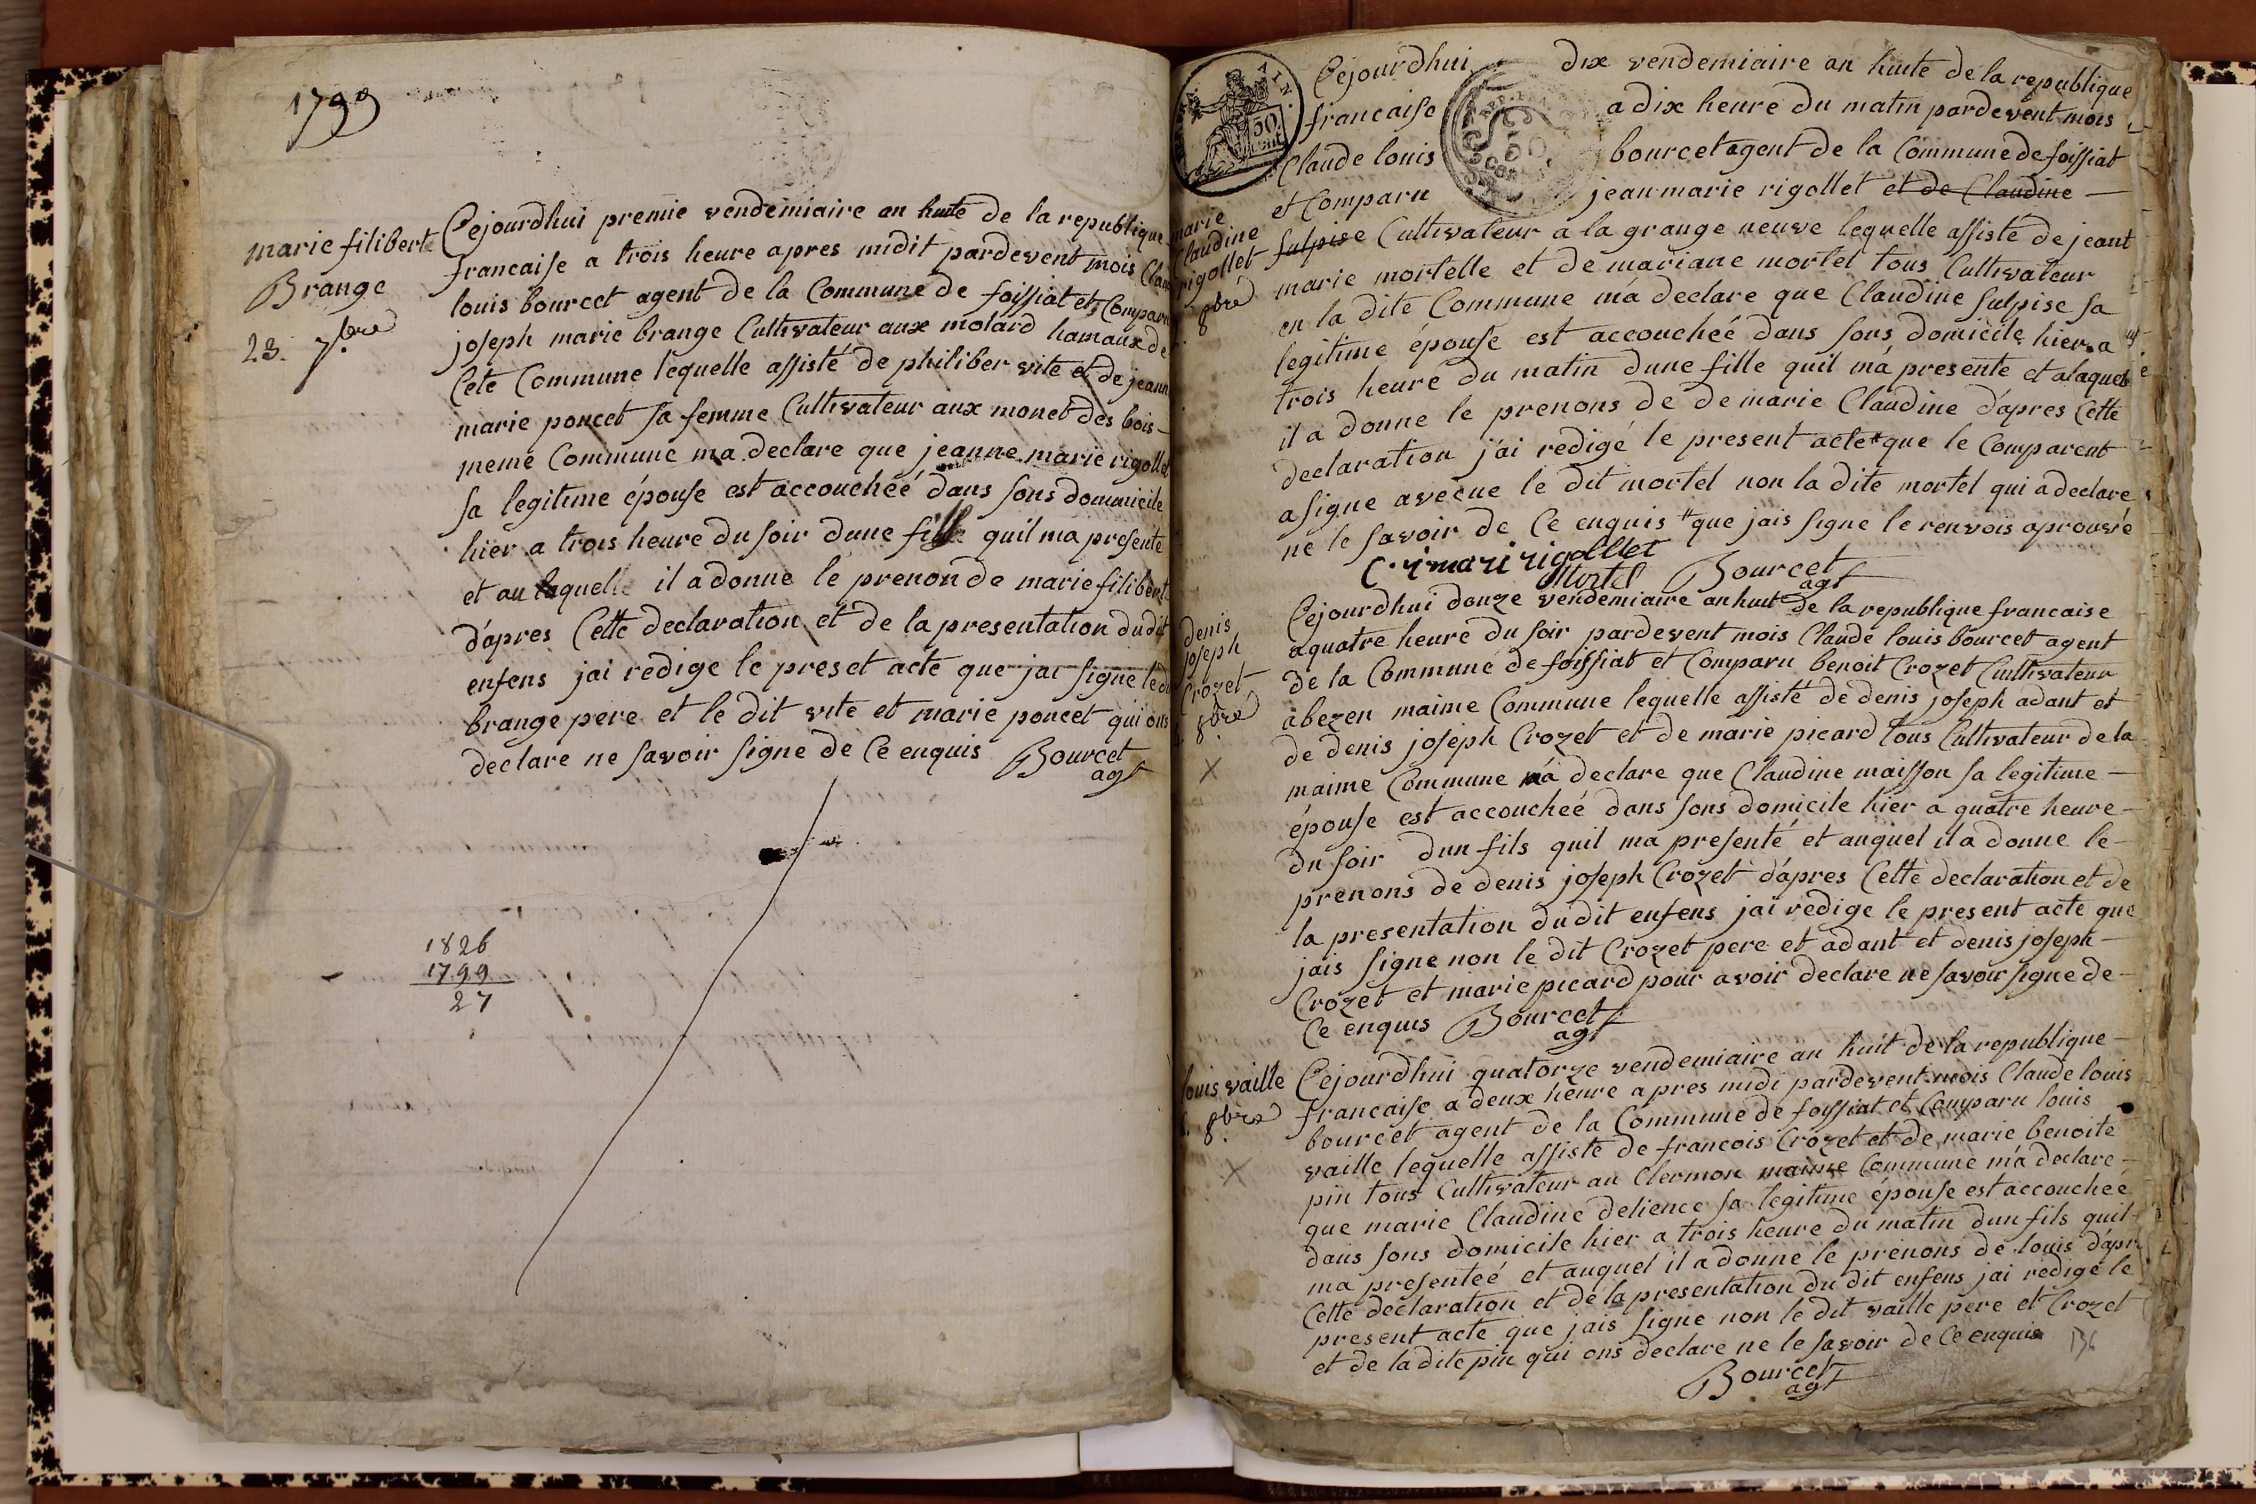 1799
marie filiberte
Brange
23. 7.bre
Cejourdhui premie vendemiaire an huite de la republique
francaise a trois heure apres midit pardevent mois Clau
louis bourcet agent de la Commune de foissiat et Comparu
joseph marie brange Cultivateur aux molard hamaux de
Cete Commune lequelle assisté de philiber vite et de jeann
marie poncet sa femme Cultivateur aux monet des bois -
meme Commune ma declare que jeanne marie rigollet
sa legitime épouse est accoucheé dans sons domicile
hier a trois heure du soir dune fille quil ma presente
et au laquelle il a donne le prenon de marie filibert
d'apres Cette declaration et de la presentation du dit
enfens jai redige le preset acte que jai signe le d
brange pere et le dit vite et marie poncet qui ons
declare ne savoir signe de Ce enquis Bourcet
agt
1826
1799
27
AIN.
50
cent
Cejourdhui dix vendemiaire an huite de la republique
francaise a dix heure du matin pardevent mois
Claude louis bourcet agent de la Commune de foissiat
et Comparu jean marie rigollet et de Claudine
marie
Claudine
rigollet
8bre
sulpise Cultivateur a la grange neuve lequelle assisté de jeant
marie mortelle et de mariane mortel tous Cultivateur
en la dite Commune m'a declare que Claudine sulpise sa
legitime épouse est accoucheé dans sons domicile hier a
trois heure du matin dune fille quil m'a presente et a laquel
il a donne le prenons de de marie Claudine d'apres Cette
declaration j'ai redigé le present acte # que le Comparent
a signe avecue le dit mortel non la dite mortel qui a declare
ne le savoir de Ce enquis # que jais signe le renvois aprouvé
C. j mari rigolllet
Mortel Bourcet
agt
denis
joseph
Crozet
8bre
X
Cejourdhui douze vendemiaire an huit de la republique francaise
a quatre heure du soir pardevent mois Claude louis bourcet agent
de la Commune de foissiat et Comparu benoit Crozet Cultivateur
a bezen maime Commune lequelle assisté de denis joseph adant et
de denis joseph Crozet et de marie picard tous Cultivateur de la
maime Commune m'a declare que Claudine maisson sa legitime -
épouse est accoucheé dans sons domicile hier a quatre heure -
du soir dun fils quil ma presenté et auquel il a donne le -
prenons de denis joseph Crozet d'apres Cette declaration et de
la presentation du dit enfens jai redige le present acte que
jais signe non le dit Crozet pere et adant et denis joseph -
Crozet et marie picard pour avoir declare ne savoir signe de -
Ce enquis Bourcet
agt
louis vaille
8.bre
X
Cejourdhui quatorze vendemiaire an huit de la republique -
francaise a deux heure apres midi pardevent mois Claude louis
bourcet agent de la Commune de foissiat et Comparu louis
vaille lequelle assiste de francois Crozet et de marie benoite
pin tous Cultivateur au Clermon maime Commune m'a declare -
que marie Claudine delience sa legitime épouse est accoucheé
dans sons domicile hier a trois heure du matin dun fils quil
ma presenteé et auquel il a donne le prenons de louis d'apr
Cette declaration et de la presentation du dit enfens jai redigé le
present acte que jais signe non le dit vaille pere et Crozet
et de la dite pin qui ons declare ne le savoir de Ce enquis 136
Bourcet
agt